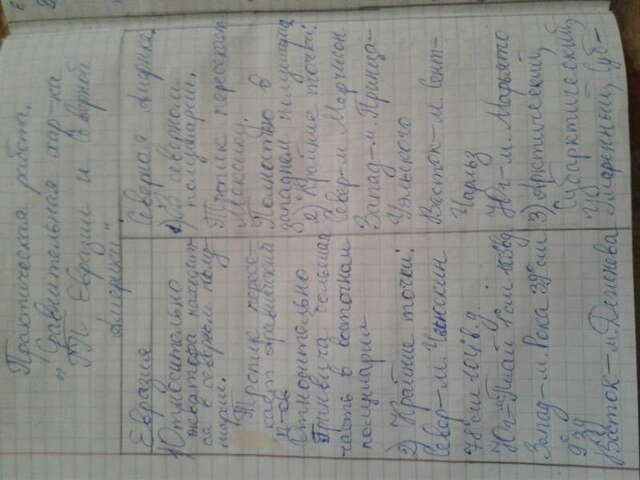 Практическая работа.
„Сравнительная хар-ка
ГП Евразии и Северной
Америки".
Евразия
1) Относительно
экватора находит-
ся в северном полу-
шарии.
Тропик пересе-
кает Аравийский
п-ов
Относительно
Гринвича большая
часть в восточном
полушарии
2) Крайние точки:
Север-м. Челюскин
78°сш 104°в.д.
Юг- Пиай 1°сш 103°вд
Запад-м. Рока 39°сш
9°зд
Восток-м. Дежнева
Северная Америка.
1) В северном
полушарии.
Тропик пересекает
Мексику.
Полностью в
западном полушарии
2) Крайние точки:
Север-м Мерчисон
Запад-м. Принца-
Уэльского
Восток-м Сент-
Чарльз
Юг-м. Марьято
3) Арктический,
Субарктический,
Умеренный, Суб-